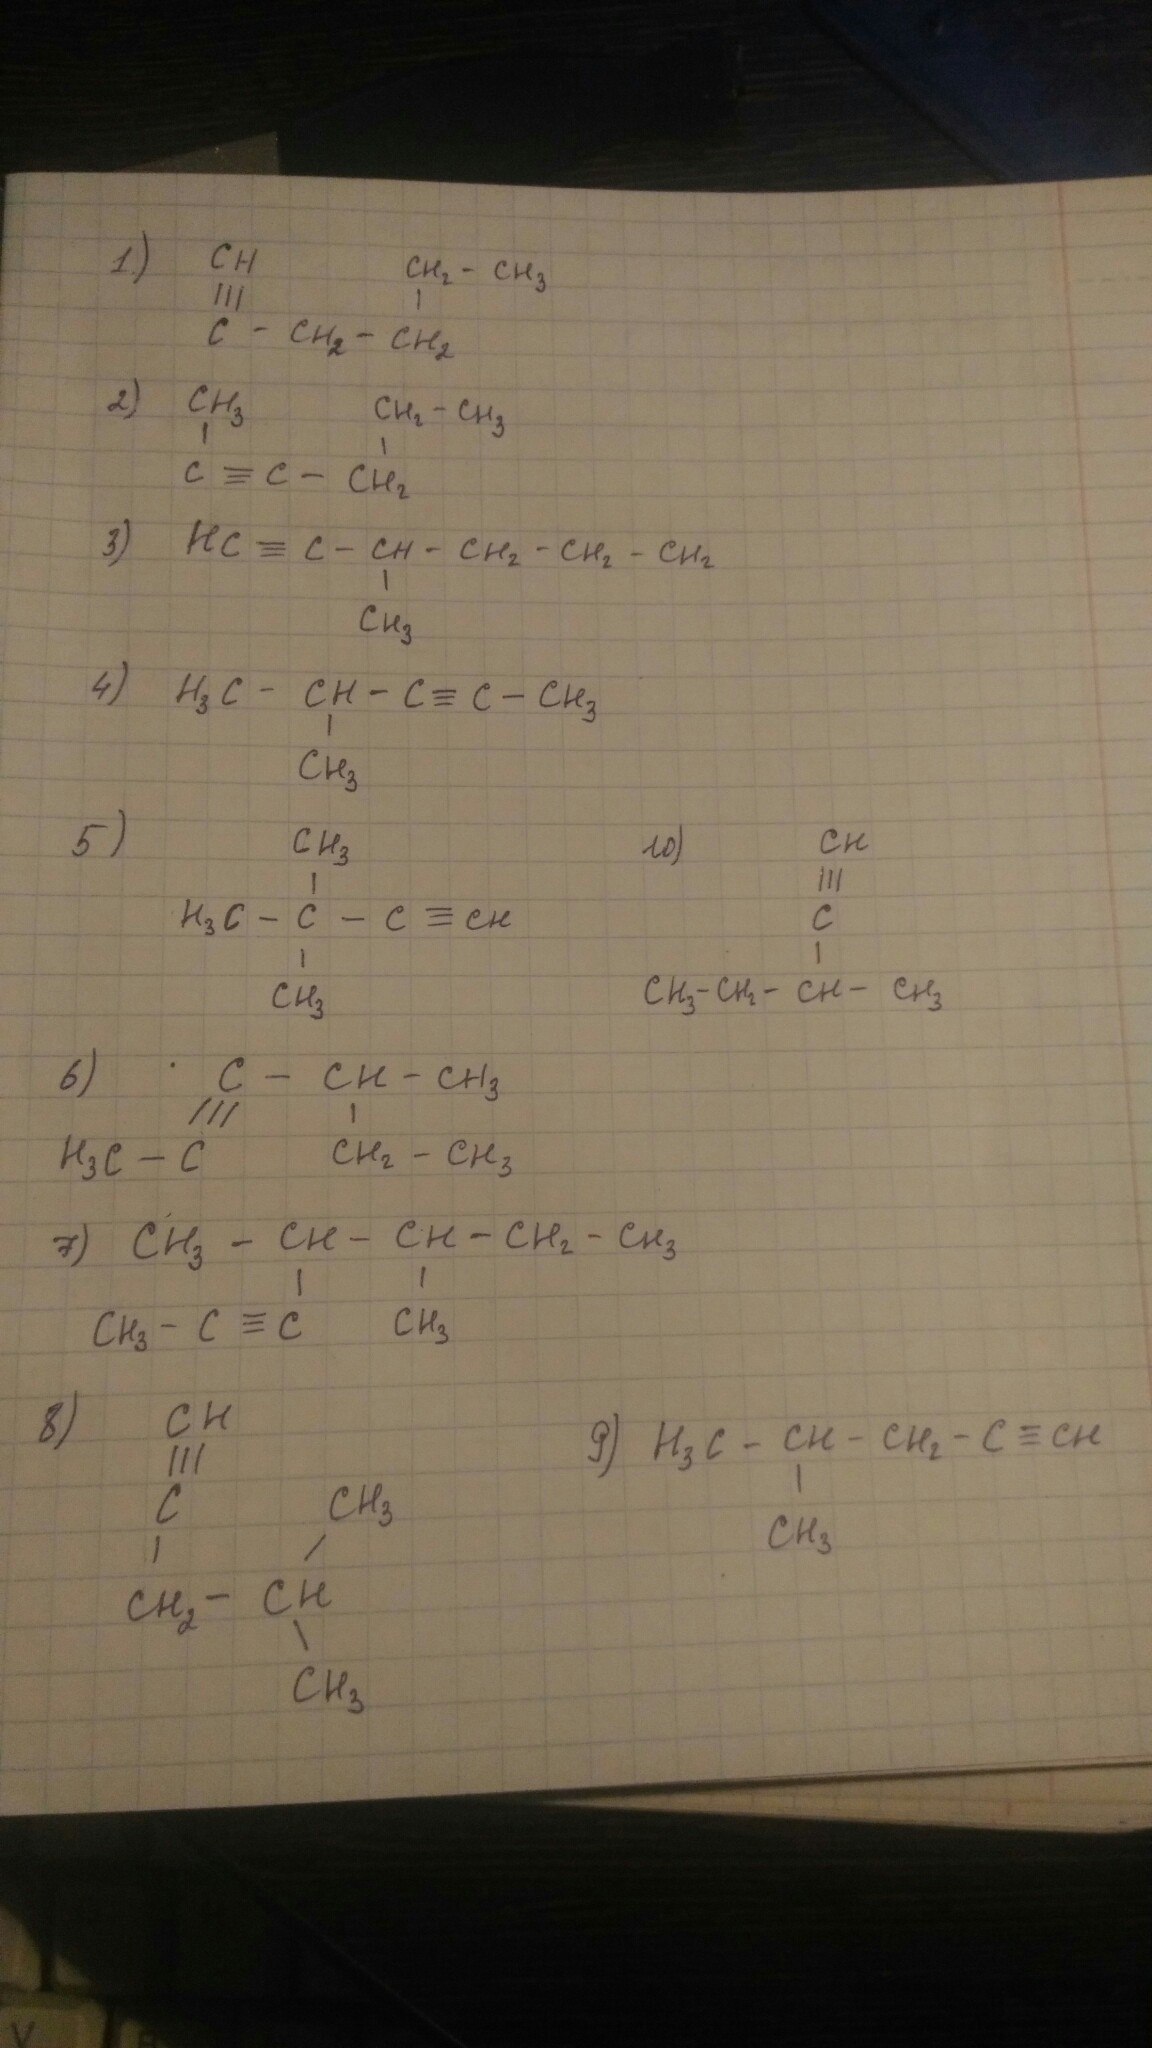 1.) CH CH₂ - CH₃
||| |
C - CH₂ - CH₂
2) CH₃ CH₂ - CH₃
| |
C ≡ C - CH₂
3) HC ≡ C - CH - CH₂ - CH₂ - CH₂
|
CH₃
4) H₃C - CH - C ≡ C - CH₃
|
CH₃
5) CH₃
|
H₃C - C - C ≡ CH
|
CH₃
10) CH
|||
C
|
CH₃ - CH₂ - CH - CH₃
6) C - CH - CH₃
/// |
H₃C - C CH₂ - CH₃
7) CH₃ - CH - CH - CH₂ - CH₃
| |
CH₃ - C ≡ C CH₃
8) CH
|||
C CH₃
| /
CH₂ - CH
\
CH₃
9) H₃C - CH - CH₂ - C ≡ CH
|
CH₃